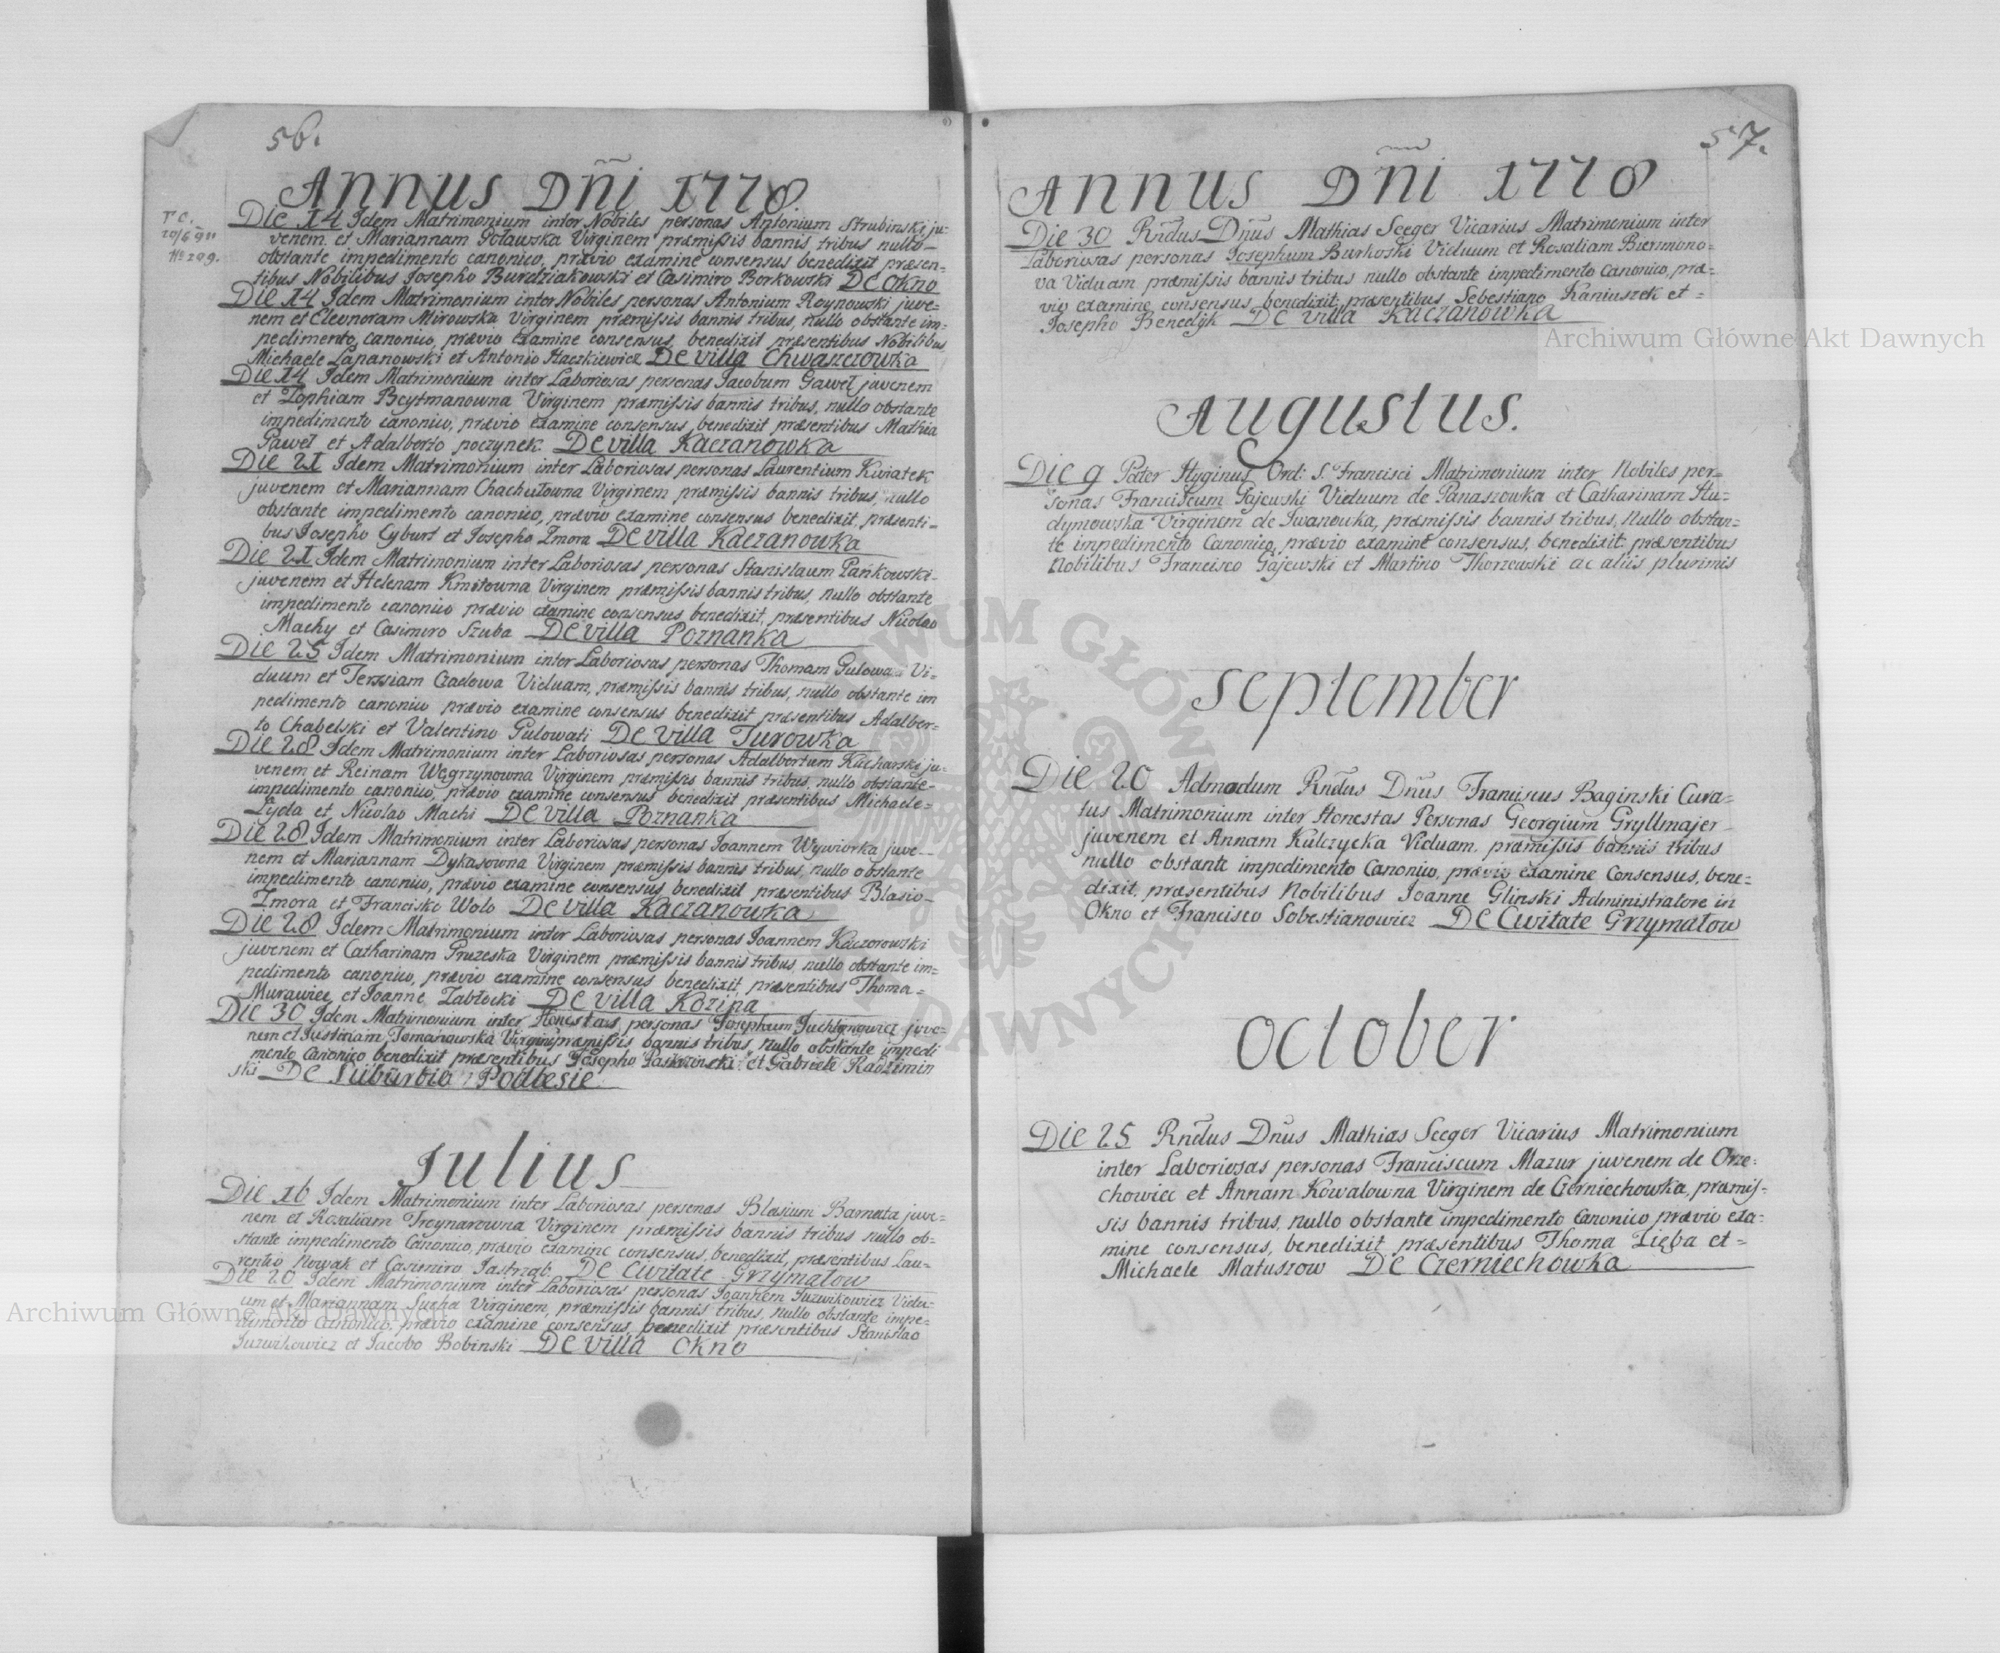 56.
Annus Dñi 1778.
T. C.
20/6 911
No 209.
Die 14 Idem Matrimonium inter Nobiles personas Antonium Strubinski ju-
venem et Mariannam Goławska Virginem præmissis bannis tribus nullo
obstante impedimento canonico, prævio examine consensus benedixit præsen-
tibus Nobilibus Josepho Burdziakowski et Casimiro Borkowski De Okno
Die 14 Idem Matrimonium inter Nobiles personas Antonium Roynowski juve-
nem et Eleonoram Mirowska Virginem præmissis bannis tribus, nullo obstante im-
pedimento canonico, prævio examine consensus, benedixit præsentibus Nobilibus
Michaele Łapanowski et Antonio Haczkiewicz De villa Chwaszczowka
Die 14 Idem Matrimonium inter Laboriosas personas Jacobum Gaweł juvenem
et Zophiam Beytmanowna Virginem præmissis bannis tribus, nullo obstante
impedimento canonico, prævio examine consensus, benedixit præsentibus Mathia
Gaweł et Adalberto poczynek. De villa Kaczanowka
Die 21 Idem Matrimonium inter Laboriosas personas Laurentium Kwiatek
juvenem et Mariannam Chachułowna Virginem præmissis bannis tribus, nullo
obstante impedimento canonico, prævio examine consensus benedixit, præsenti-
bus Josepho Cyburt et Josepho Zmora De villa Kaczanowka
Die 21 Idem Matrimonium inter Laboriosas personas Stanislaum Pańkowski
juvenem et Helenam Kmitowna Virginem præmissis bannis tribus, nullo obstante
impedimento canonico prævio examine consensus benedixit, præsentibus Nicolao
Machy et Casimiro Szuba De villa Poznanka
Die 25 Idem Matrimonium inter Laboriosas personas Thomam Gulowa Vi-
duum et Teressiam Czadowa Viduam, præmissis bannis tribus, nullo obstante im
pedimento canonico prævio examine consensus benedixit præsentibus Adalber-
to Chabelski et Valentino Gulowati De villa Turowka
Die 28 Idem Matrimonium inter Laboriosas personas Adalbertum Kucharski ju-
venem et Reinam Węgrzynowna Virginem præmissis bannis tribus, nullo obstante
impedimento canonico, prævio examine consensus benedixit præsentibus Michaele=
Lyda et Nicolao Machi De villa Poznanka
Die 28 Idem Matrimonium inter Laboriosas personas Joannem Wywiorka juve-
nem et Mariannam Dykasowna Virginem præmissis bannis tribus, nullo obstante
impedimento canonico, prævio examine consensus, benedixit præsentibus Blasio
Zmora et Francisko Wolo De villa Kaczanowka
Die 28 Idem Matrimonium inter Laboriosas personas Joannem Kaczorowski
juvenem et Catharinam Pruzeska Virginem præmissis bannis tribus, nullo obstante im=
pedimento canonico, prævio examine consensus benedixit, præsentibus Thoma=
Murawiec et Joanne Zabłocki De villa Kozina
Die 30 Idem Matrimonium inter Honestas personas Josephum juve-
nem et Justinam Tomanowska Virginem præmissis bannis tribus, nullo obstante impedi
mento Canonico benedixit præsentibus Josepho et Gabriele Radzimin
ski De Suburbio Podlesie
Julius
Die 16 Idem Matrimonium inter Laboriosas personas Blasium Barnata juve-
nem et Rosaliam Treynarowna Virginem præmissis bannis tribus nullo ob-
stante impedimento Canonico, prævio examine consensus, benedixit, præsentibus Lau-
rentio Nowak et Casimiro Jastrząb De Civitate Grzymałow
Die 20 Idem Matrimonium inter Laboriosas personas Joannem Juzwikowicz Vidu-
um et Mariannam Sucha Virginem, præmissis bannis tribus, nullo obstante impe-
dimento Canonico, prævio examine consensus, benedixit præsentibus Stanislao
Juzwikowicz et Jacobo Bobinski De villa Okno
57.
Annus Dñi 1778
Die 30 Rndus Dnus Mathias Seeger Vicarius Matrimonium inter
Laboriosas personas Josephum Burkoski Viduum et Rosaliam Biernono-
va Viduam præmissis bannis tribus nullo obstante impedimento Canonico, præ-
vio examine consensus, benedixit præsentibus Sebestiano Kaniuszek et =
Josepho Benedyk De villa Kaczanowka
Augustus.
Die 9 Pater Hyginus Ord: S. Francisci Matrimonium inter Nobiles per-
sonas Franciscum Gajewski Viduum de Panaszowka et Catharinam Hu-
dymowska Virginem de Iwanowka, præmissis bannis tribus, Nullo obstan-
te impedimento Canonico, prævio examine consensus, benedixit præsentibus
Nobilibus Francisco Gajewski et Martino Thorzewski ac aliis plurimis
September
Die 20 Admodum Rndus Dnus Franciscus Baginski Cura-
tus Matrimonium inter Honestas Personas Georgium Gryllmajer
juvenem et Annam Kulczycka Viduam, præmissis bannis tribus
nullo obstante impedimento Canonico, prævio examine Consensus, bene-
dixit, præsentibus Nobilibus Joanne Glinski Administratore in
Okno et Francisco Sobestianowicz De Civitate Grzymałow
October
Die 25 Rndus Dnus Mathias Seeger Vicarius Matrimonium
inter Laboriosas personas Franciscum Mazur juvenem de Orze-
chowiec et Annam Kowalowna Virginem de Czerniechowka, præmis-
sis bannis tribus, nullo obstante impedimento Canonico, prævio exa-
mine consensus, benedixit præsentibus Thoma Zięba et =
Michaele Matuszow De Czerniechowka
Archiwum Główne Akt Dawnych
Archiwum Główne Akt Dawnych
ARCHIWUM GŁÓWNE AKT DAWNYCH